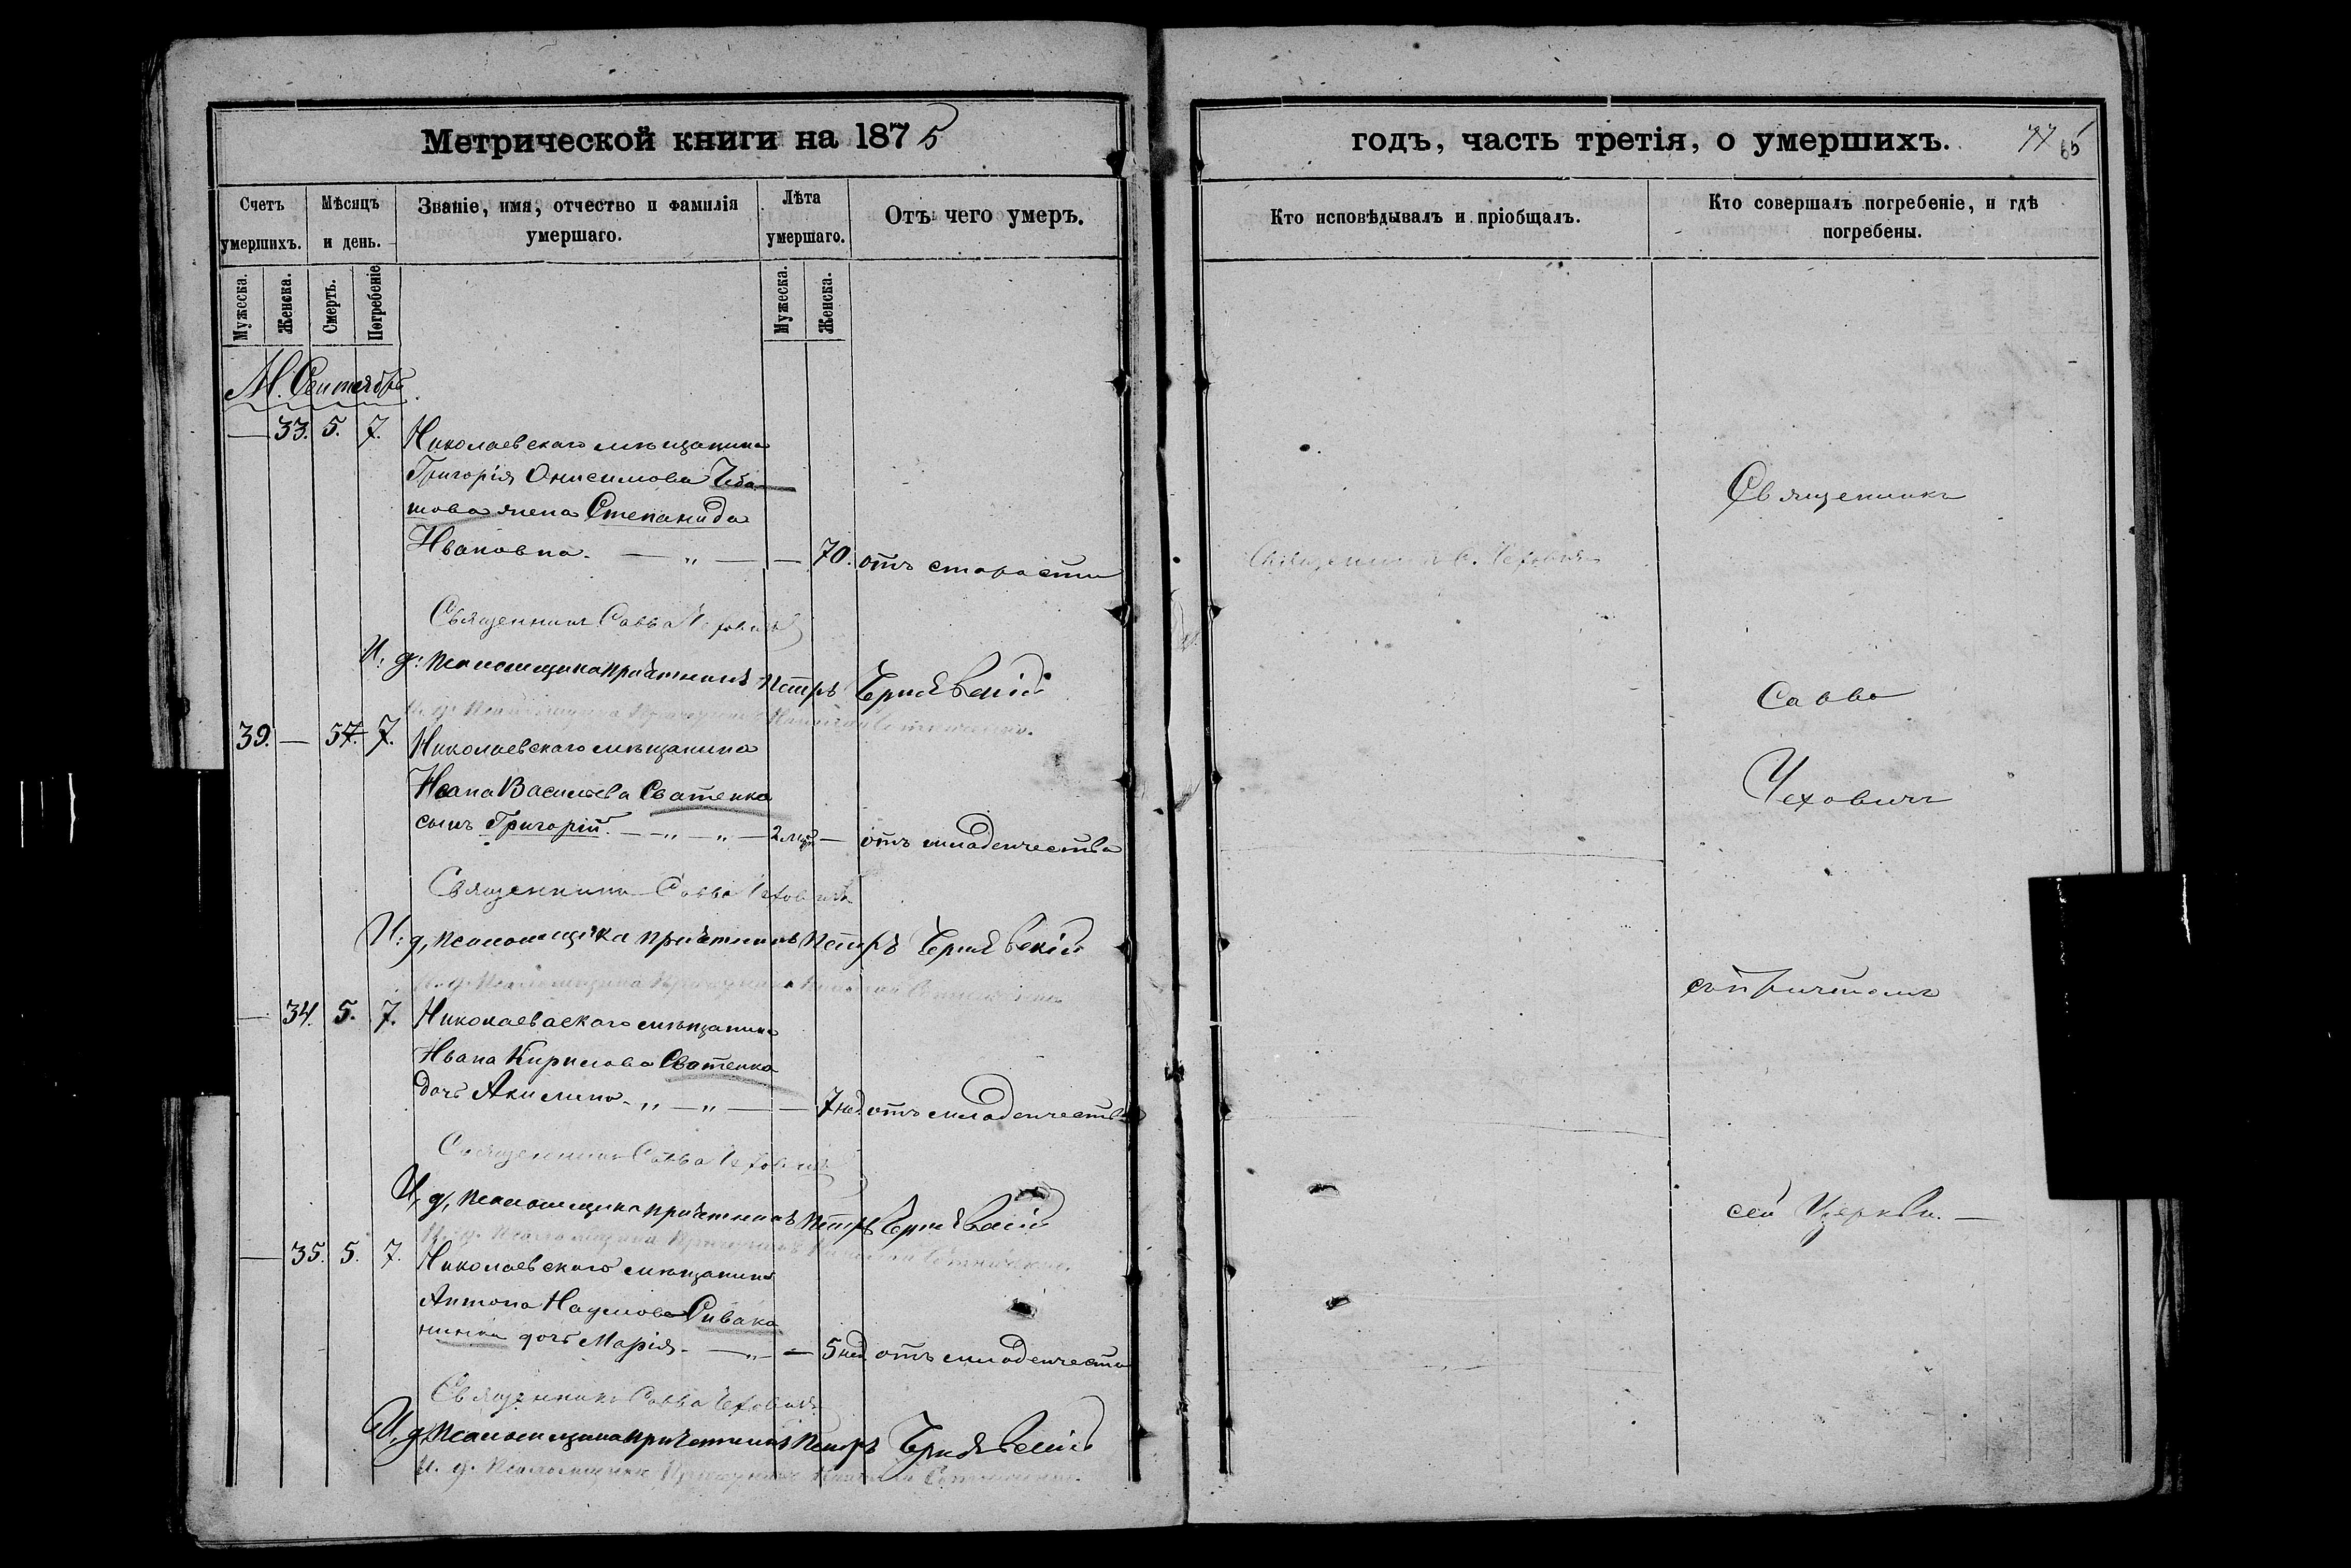 Метрической книги на 1875
Счетъ умершихъ.
Мѣсяцъ и день.
Званіе, имя, отчество и фамилія умершаго.
Лѣта умершаго.
Отъ чего умеръ.
Мужеска.
Женска.
Смерть.
Погребеніе
Мужеска.
Женска.
М. Сентябрь
— 33. 5. 7. Николаевскаго мѣщанина
Григорія Онисимова Чба-
това жена Степанида
Ивановна. — „ — — 70. отъ старости
Священникъ Савва Чеховичъ
И. д. псаломщика причетникъ Петръ Чернявскій
И. д. Псаломщика Причетникъ
39. — 5 7. Николаевскаго мѣщанина
Ивана Васильева Сватенка
сынъ Григорій. — „ — „ — 2 мѣ — отъ младенчества
Священникъ Савва Чеховичъ
И. д. псаломщика причетникъ Петръ Чернявскій
И. д. Псаломщика Причетникъ
— 34. 5. 7. Николаеваскаго мѣщанина
Ивана Кирилова Сватенка
дочь Акилина. „ — „ — — 7 нед. отъ младенчества
Священникъ Савва Чеховичъ
И. д. псаломщика причетникъ Петръ Чернявскій
И. д. Псаломщика Причетникъ
— 35. 5. 7. Николаевскаго мѣщанина
Антона Наумова Сивако-
ненка дочь Марія. — „ — 5 нед. отъ младенчества
Священникъ Савва Чеховичъ
И. д. псаломщика причетникъ Петръ Чернявскій
И. д. Псаломщика Причетникъ
годъ, часть третія, о умершихъ.
77 65
Кто исповѣдывалъ и пріобщалъ.
Кто совершалъ погребеніе, и гдѣ погребены.
Священникъ С. Чеховичъ
Священникъ
Савва
Чеховичъ
съ причтомъ
сей Церкви. —